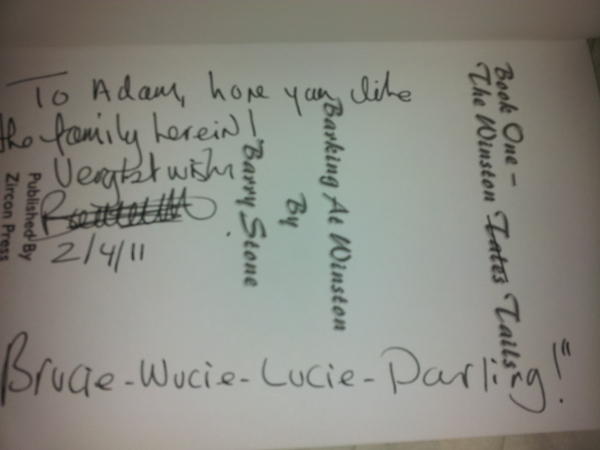 To Adam, hope you like
the family herein!
Very best wishes
2/4/11
Brucie-Wucie-Lucie-Darling!"
Book One -
The Winston Tales Tails
Barking At Winston
By
Barry Stone
Published By
Zircon Press